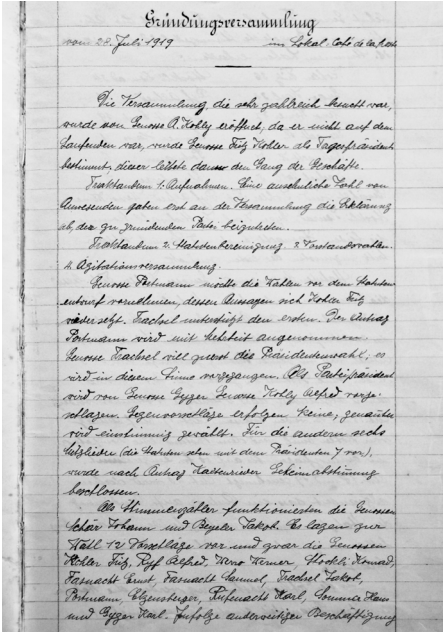 Gründungsversammlung
vom 28. Juli 1919 im Lokal Café de la Poste
Die Versammlung, die sehr zahlreich besucht war,
wurde von Genosse A. Kohly eröffnet, da er nicht auf dem
Laufenden war, wurde Genosse Fritz Kohler als Tagespräsident
bestimmt, dieser leitete dann den Gang der Geschäfte.
Traktandum 1. Aufnahmen. Eine ansehnliche Zahl von
Anwesenden gaben erst an der Versammlung die Erklärung
ab, der zu gründenden Partei beizutreten.
Traktandum 2. Statutenbereinigung 3. Vorstandswahlen.
4. Agitationsversammlung.
Genosse Portmann möchte die Wahlen vor dem Statuten-
entwurf vornehmen, dessen Aussagen sich Kohler Fritz
widersetzt. Trachsel unterstützt den ersten. Der Antrag
Portmann wird mit Mehrheit angenommen.
Genosse Trachsel will zuerst die Präsidentenwahl, es
wird in diesem Sinne vorgegangen. Als Parteipräsident
wird von Genosse Gyger Genosse Kohly Alfred vorge-
schlagen. Gegenvorschläge erfolgen keine, genannter
wird einstimmig gewählt. Für die andern sechs
Mitglieder (die Statuten sehen mit dem Präsidenten 7 vor),
wurde nach Antrag Geheimabstimmung
beschlossen.
Als Stimmenzähler funktionierten die Genossen
Schär Johann und Beyeler Jakob. Es lagen zur
Wahl 12 Vorschläge vor und zwar die Genossen
Kohler Fritz, Ryf Alfred, Werner, Konrad,
Fasnacht Ernst, Fasnacht Samuel, Trachsel Jakob,
Portmann, Rufenacht Karl, Sommer Hans
und Gygger Karl. Infolge anderweitiger Beschäftigung